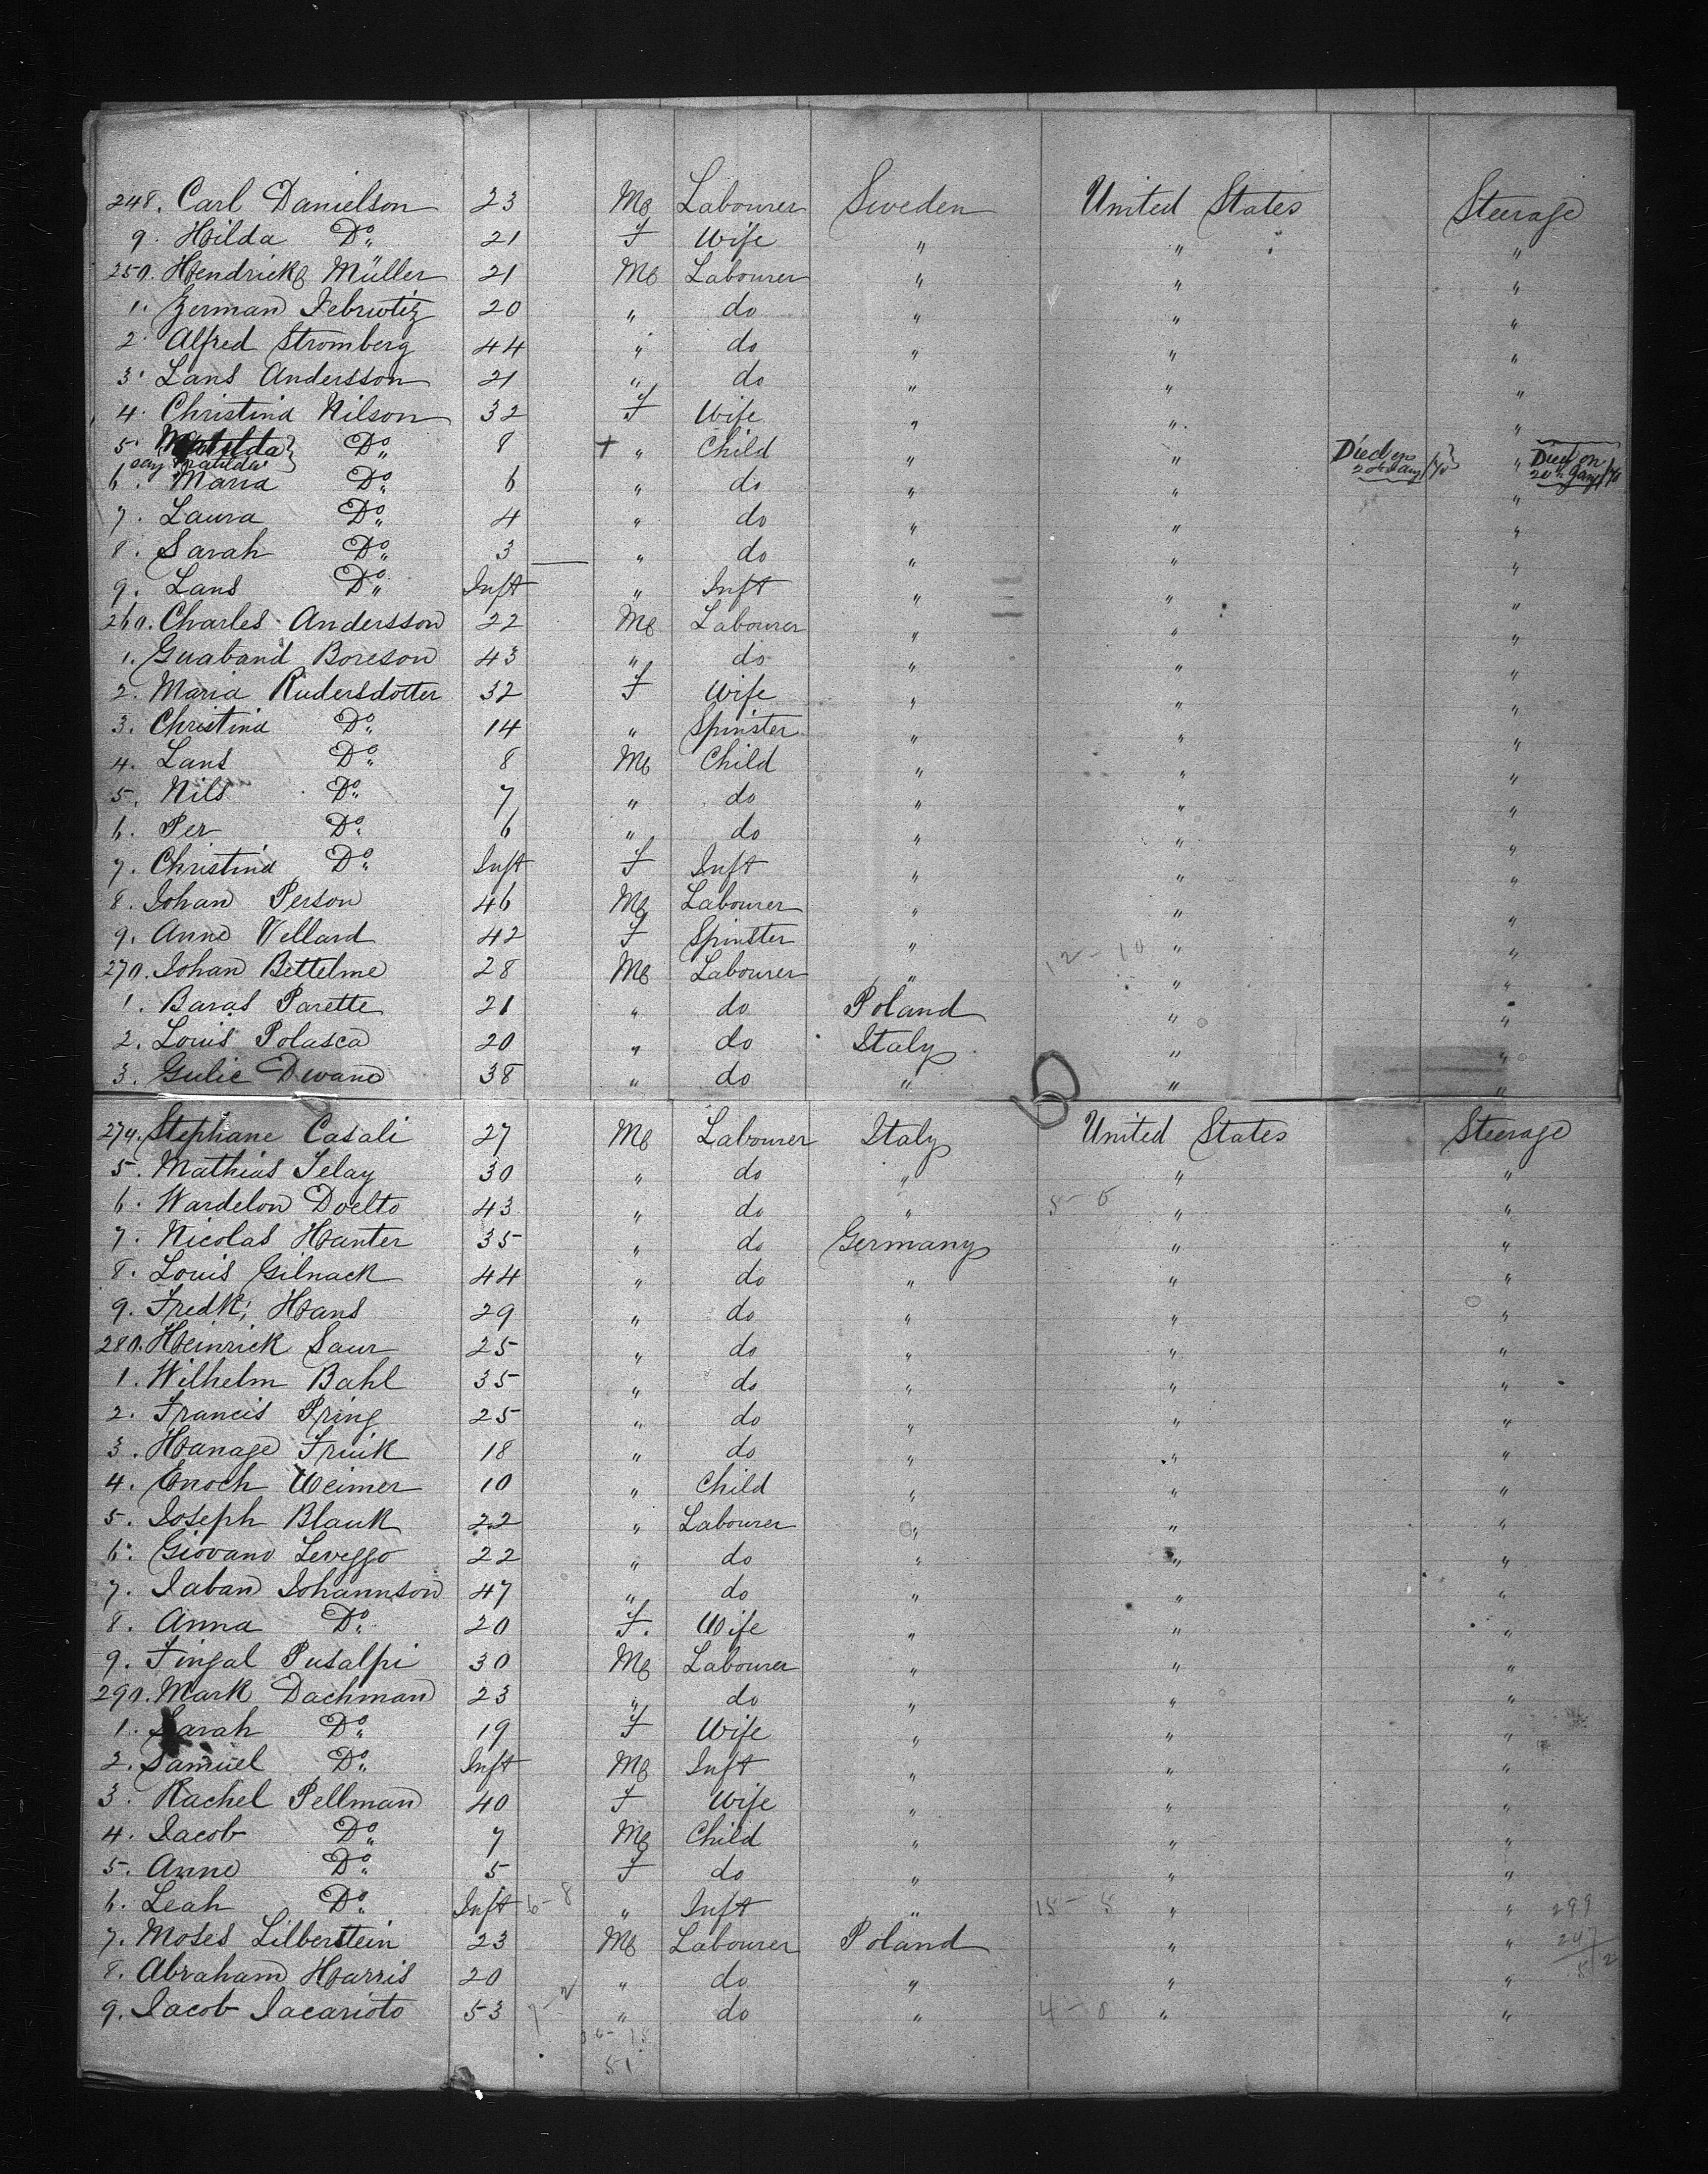 248. Carl Danielson 23 M Labourer Sweden United States Steerage
9. Hilda Do 21 F Wife " " "
250. Hendrick Müller 21 M Labourer " " "
1. Zerman Febrwitz 20 " do " " "
2. Alfred Stromberg 44 " do " " "
3. Lans Andersson 21 " do " " "
4. Christina Nilson 32 F Wife " " "
5. Matilda Do 8 + " Child " " Died on 20th Jany/70 " Died on 20th Jany/70
say Matilda
6. Maria Do 6 " do " " "
7. Laura Do 4 " do " " "
8. Sarah Do 3 " do " " "
9. Lans Do Inft " Inft " " "
260. Charles Andersson 22 M Labourer " " "
1. Guaband Boreson 43 " do " " "
2. Maria Rudersdotter 32 F Wife " " "
3. Christina Do 14 " Spinster " " "
4. Lans Do 8 M Child " " "
5. Nils Do 7 " do " " "
6. Per Do 6 " do " " "
7. Christina Do Inft F Inft " " "
8. Johan Person 46 M Labourer " " "
9. Anne Vellard 42 F Spinster " 12-10 " "
270. Johan Bettelme 28 M Labourer " " "
1. Baras Parette 21 " do Poland " "
2. Louis Polasca 20 " do Italy " "
3. Gulie Dwane 38 " do " " "
274. Stephane Casali 27 M Labourer Italy United States Steerage
5. Mathias Selay 30 " do " " "
6. Wardelon Doelto 43 " do " " "
7. Nicolas Hanter 35 " do Germany " "
8. Louis Gilnack 44 " do " " "
9. Fredk; Hans 29 " do " " "
280. Heinrick Saur 25 " do " " "
1. Wilhelm Bahl 35 " do " " "
2. Francis Pring 25 " do " " "
3. Hanage Fruik 18 " do " " "
4. Enoch Weimer 10 " Child " " "
5. Joseph Blauk 22 " Labourer " " "
6. Giovano Leveggo 22 " do " " "
7. Jaban Johannson 47 " do " " "
8. Anna Do 20 F. Wife " " "
9. Fingal Pusalpi 30 M Labourer " " "
290. Mark Dachman 23 " do " " "
1. Sarah Do 19 F Wife " " "
2. Samuel Do Inft M Inft " " "
3. Rachel Pellman 40 F Wife " " "
4. Jacob Do 7 M Child " " "
5. Anne Do 5 F do " " "
6. Leah Do Inft 6-8 " Inft " 15-5 " " 299
7. Moses Lilberstein 23 M Labourer Poland " " 247
8. Abraham Harris 20 " do " " " 52
9. Jacob Jacarioto 53 7-2 " do " 4-0 " "
36-15
51